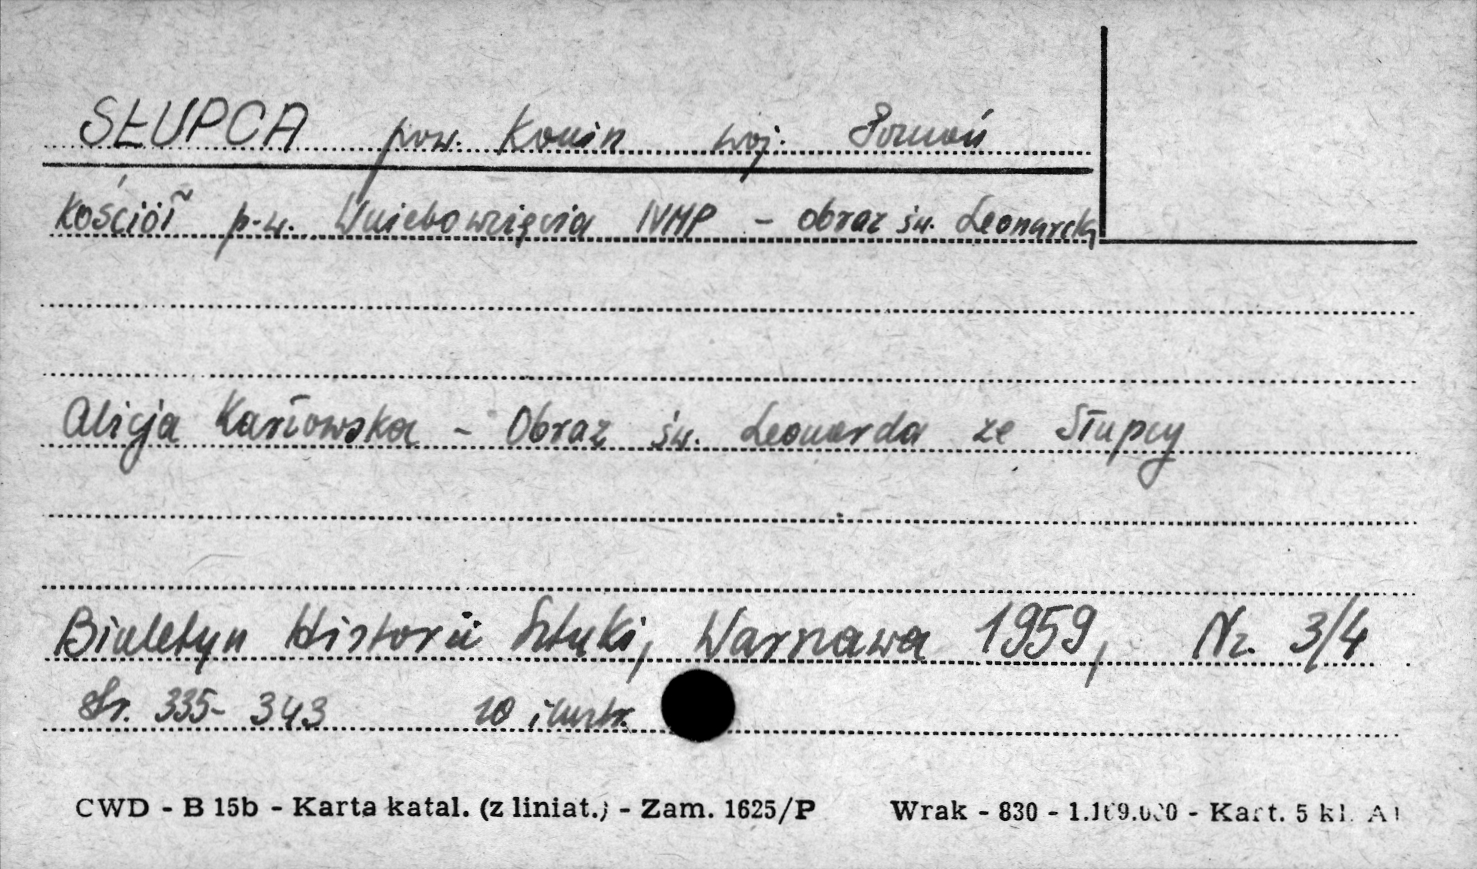 SŁUPCA pow. Konin woj. Poznań
Kościół p.w. Wniebowzięcia NMP – obraz św. Leonarda
Alicja Karłowska – Obraz św. Leonarda ze Słupcy
Biuletyn Historii Sztuki, Warszawa 1959, Nr. 3/4
Str. 335-343 10 ilustr.
CWD - B 15b - Karta katal. (z liniat.) - Zam. 1625/P Wrak - 830 - - Kart. 5 kl.